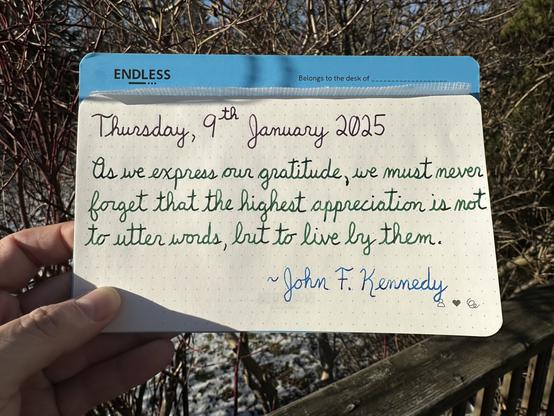 ENDLESS
Belongs to the desk of
Thursday, 9th January 2025
As we express our gratitude, we must never
forget that the highest appreciation is not
to utter words, but to live by them.
~John F. Kennedy